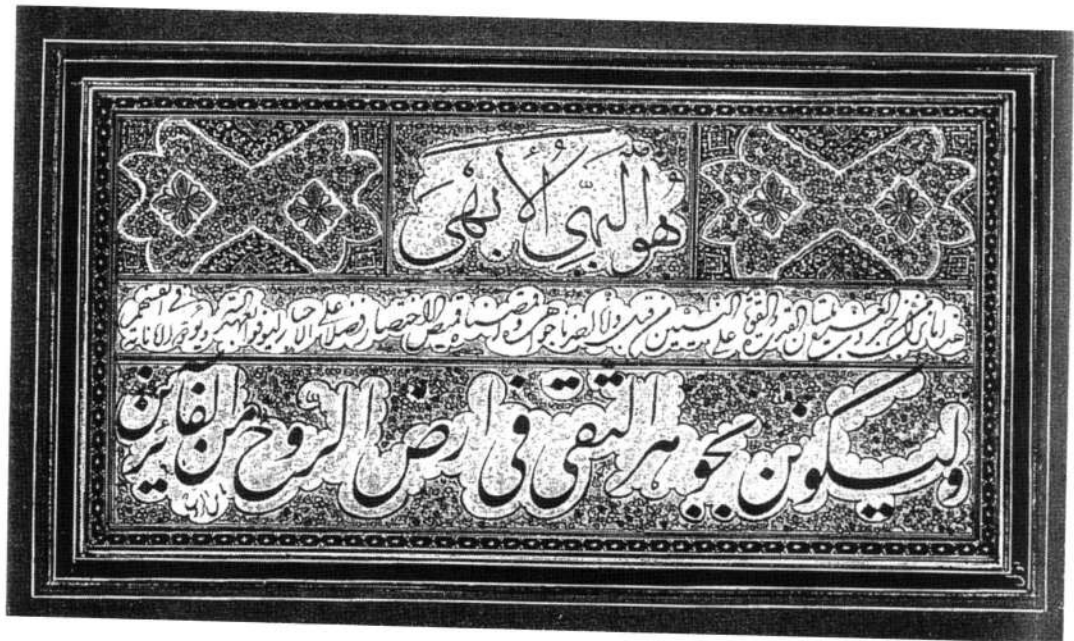 هُوَ البَهِيُّ الأَبْهَى
هذا ما نزل من جبروت العزة بلسان القدرة والقوة على النبيين من قبل وانا اخذنا جواهره واقمصناه قميص الاختصار فضلا على الاحبار ليوفوا بعهد الله ويؤدوا اماناته فى انفسهم
وليكونن بجوهر التقى فى ارض الروح من الفائزين